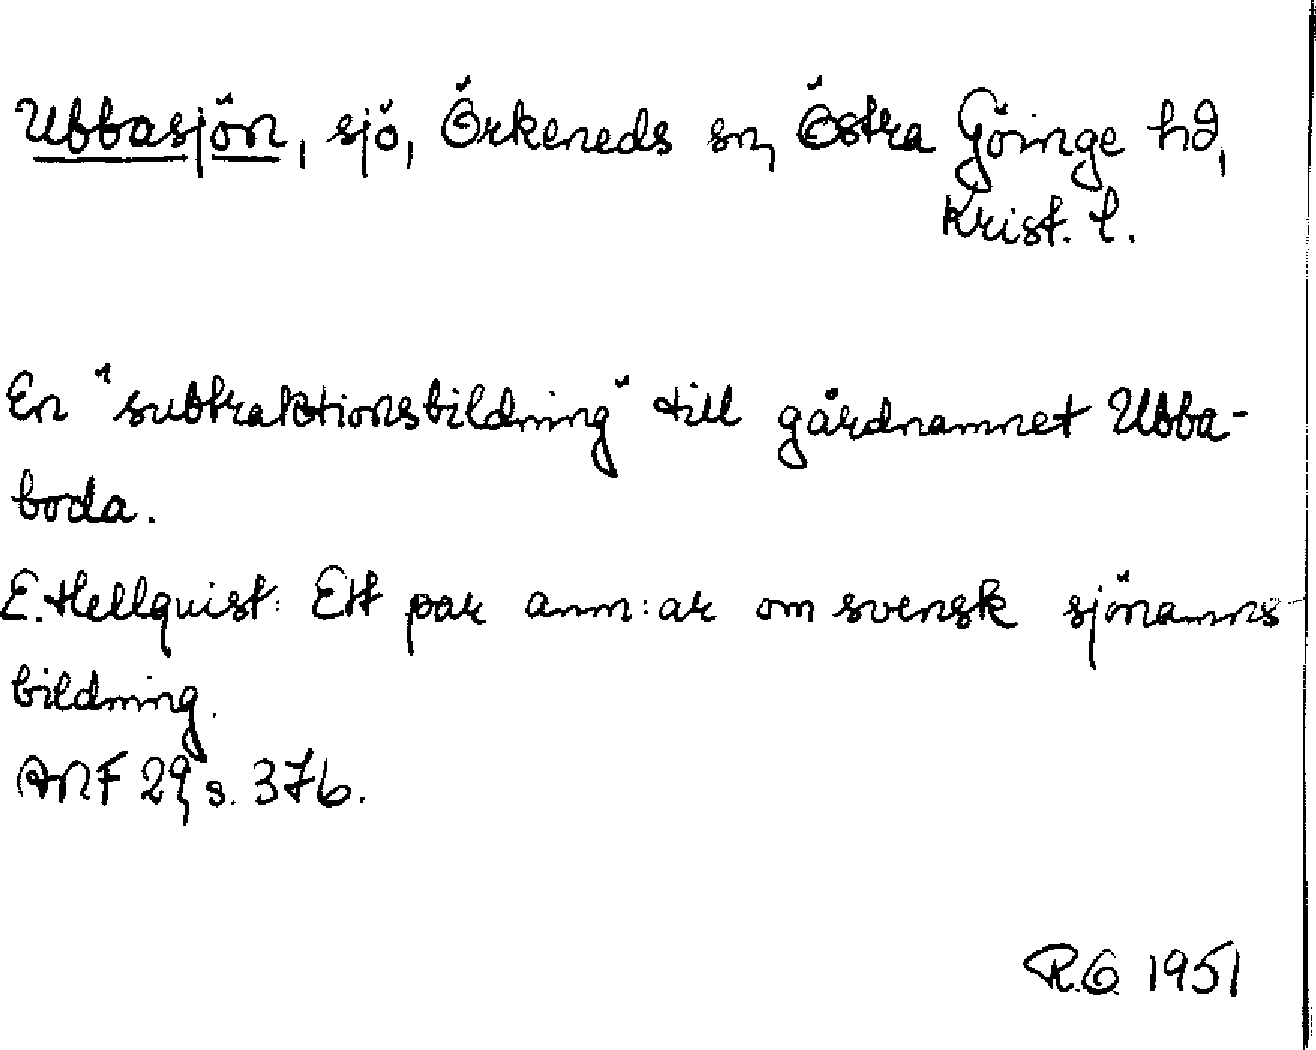 Ubbasjön, sjö, Örkeneds sn, Östra Göinge hd,
Krist. l.
En "subtraktionsbildning" till gårdnamnet Ubba-
boda.
E. Hellquist: Ett par anm:ar om svensk sjönamns-
bildning.
ANF 29, s. 376.
R.G. 1951